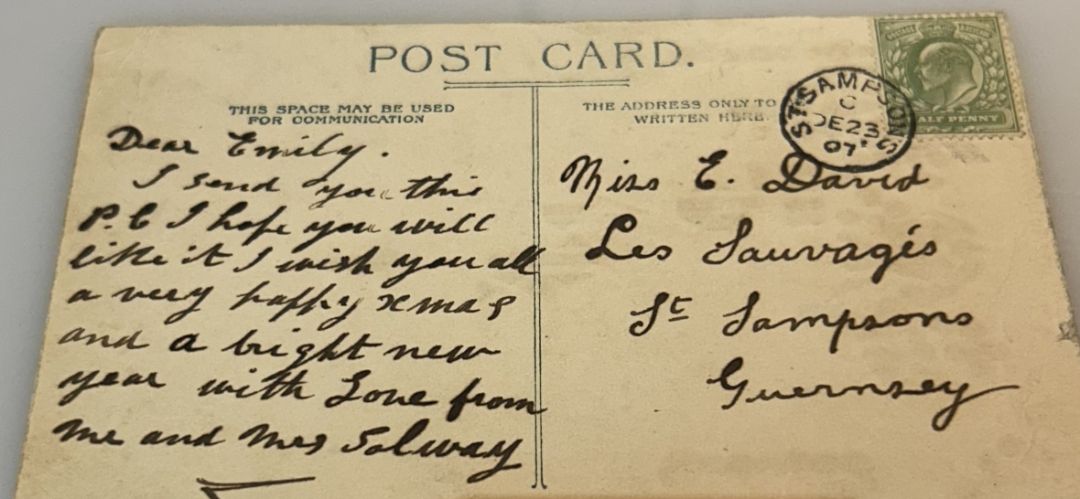 POST CARD.
THIS SPACE MAY BE USED
FOR COMMUNICATION
Dear Emily.
I send you this
P.C I hope you will
like it I wish you all
a very happy xmas
and a bright new
year with Love from
Mr and Mrs Solway
THE ADDRESS ONLY TO
WRITTEN HERE.
ST. SAMPSONS
C
DE 23
07
HALF PENNY
Miss E. David
Les Sauvagés
St Sampsons
Guernsey